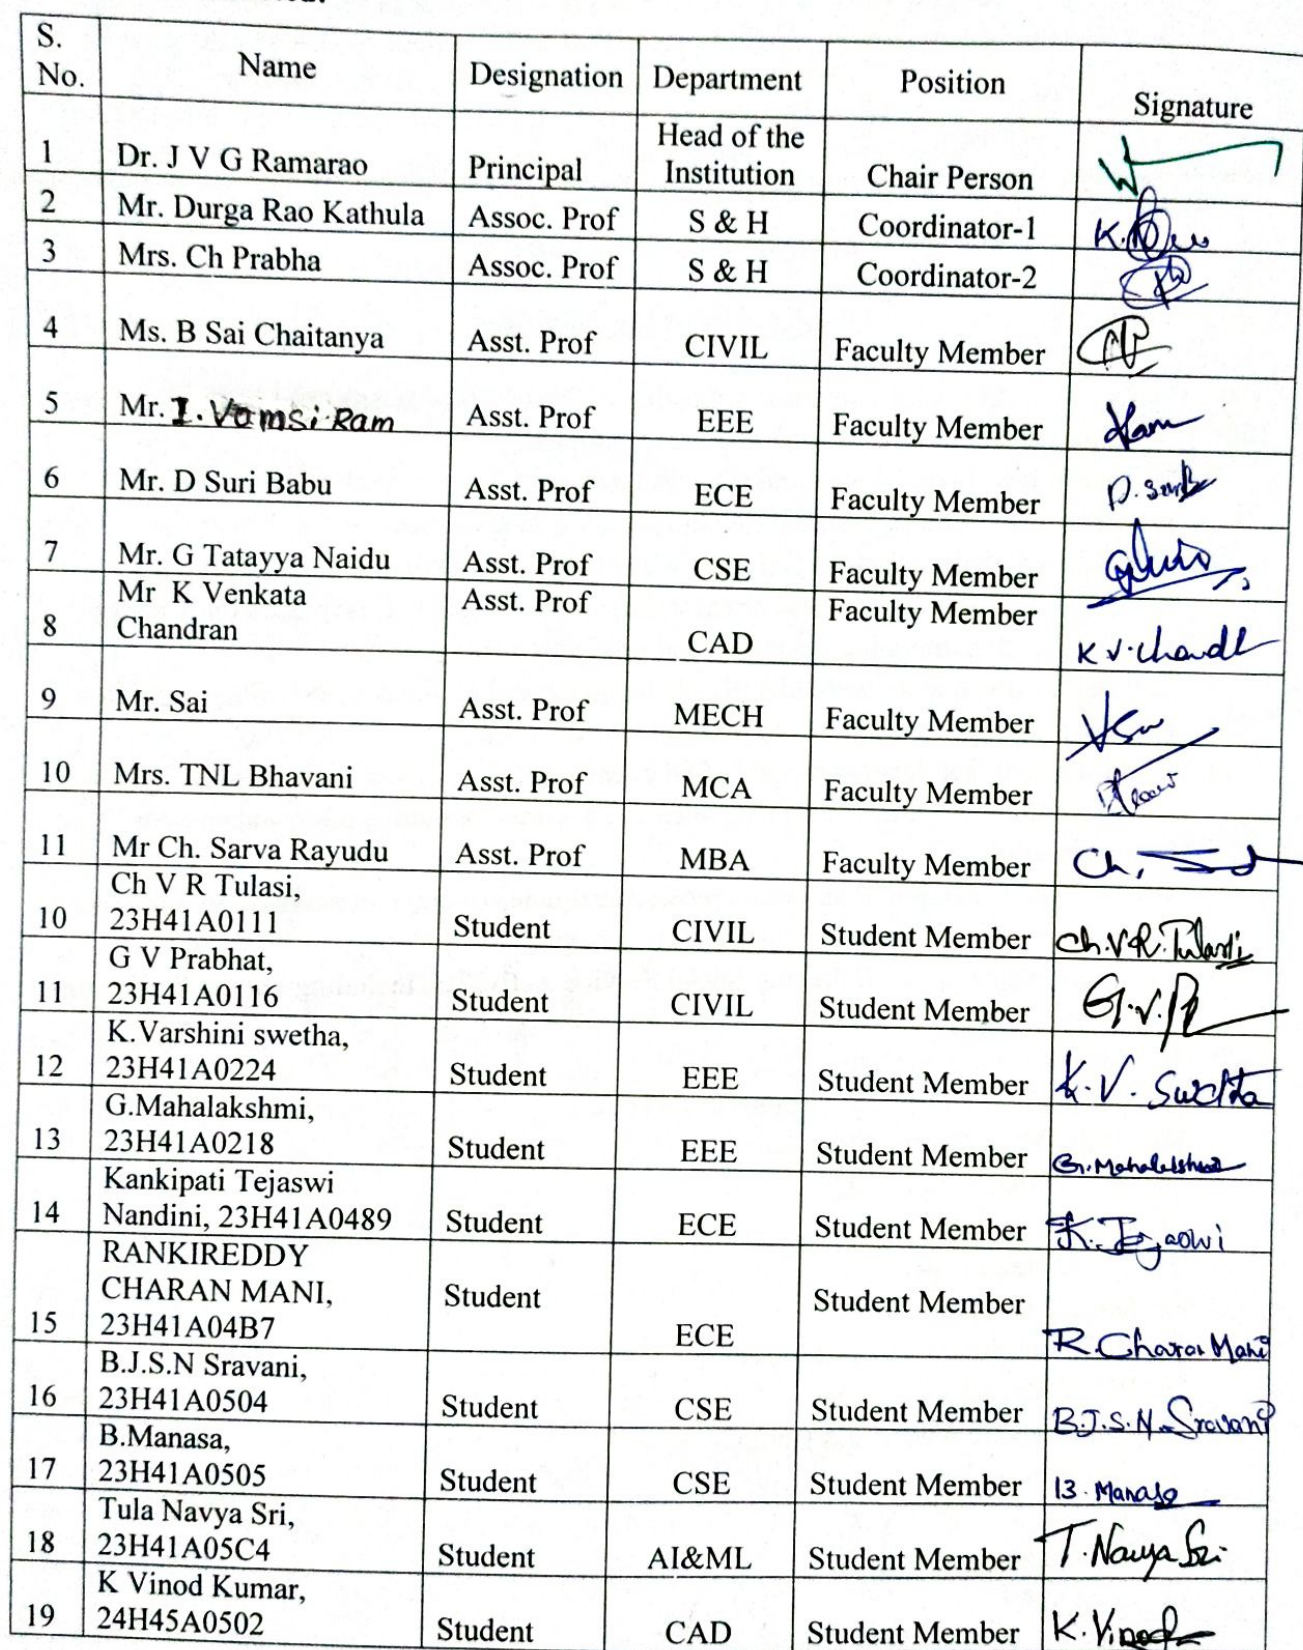 S. No. Name Designation Department Position Signature
1 Dr. J V G Ramarao Principal Head of the Institution Chair Person
2 Mr. Durga Rao Kathula Assoc. Prof S & H Coordinator-1 K.
3 Mrs. Ch Prabha Assoc. Prof S & H Coordinator-2
4 Ms. B Sai Chaitanya Asst. Prof CIVIL Faculty Member
5 Mr. I. Vamsi Ram Asst. Prof EEE Faculty Member
6 Mr. D Suri Babu Asst. Prof ECE Faculty Member
7 Mr. G Tatayya Naidu Asst. Prof CSE Faculty Member
8 Mr K Venkata Chandran Asst. Prof CAD Faculty Member
9 Mr. Sai Asst. Prof MECH Faculty Member
10 Mrs. TNL Bhavani Asst. Prof MCA Faculty Member
11 Mr Ch. Sarva Rayudu Asst. Prof MBA Faculty Member Ch.
10 Ch V R Tulasi, 23H41A0111 Student CIVIL Student Member Ch.V.R.Tulasi
11 G V Prabhat, 23H41A0116 Student CIVIL Student Member G.V.P
12 K.Varshini swetha, 23H41A0224 Student EEE Student Member K.V.Swetha
13 G.Mahalakshmi, 23H41A0218 Student EEE Student Member G.Mahalakshmi
14 Kankipati Tejaswi Nandini, 23H41A0489 Student ECE Student Member K.Tejaswi
15 RANKIREDDY CHARAN MANI, 23H41A04B7 Student ECE Student Member R.Charan Mani
16 B.J.S.N Sravani, 23H41A0504 Student CSE Student Member B.J.S.N.Sravani
17 B.Manasa, 23H41A0505 Student CSE Student Member B.Manasa
18 Tula Navya Sri, 23H41A05C4 Student AI&ML Student Member T.Navya Sri
19 K Vinod Kumar, 24H45A0502 Student CAD Student Member K.Vinod